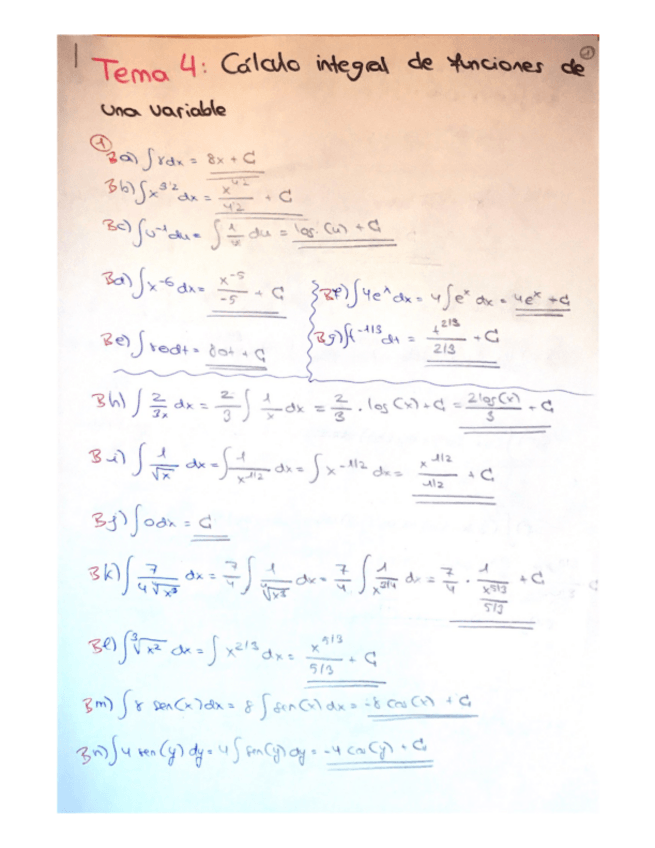 Tema 4: Cálculo integral de funciones de
una variable
1
Ba) ∫8dx = 8x + C
Bb) ∫x^3'2 dx = x^4'2/4'2 + C
Bc) ∫u^-1 du = ∫1/u du = log(u) + C
Bd) ∫x^-6 dx = x^-5/-5 + C
Bf) ∫4e^x dx = 4∫e^x dx = 4e^x + C
Be) = + C
Bg) ∫t^-1/3 dt = t^2/3 / 2/3 + C
Bh) ∫2/3x dx = 2/3 ∫1/x dx = 2/3 · log(x) + C = 2log(x)/3 + C
Bi) ∫1/√x dx = ∫1/x^1/2 dx = ∫x^-1/2 dx = x^1/2 / 1/2 + C
Bj) ∫0dx = C
Bk) dx = 7/4 ∫ dx = 7/4 ∫ = 7/4 · + C
Bl) ∫∛x² dx = ∫x^2/3 dx = x^5/3 / 5/3 + C
Bm) ∫8 sen(x)dx = 8∫sen(x)dx = -8 cos(x) + C
Bn) ∫4 sen(y)dy = 4∫sen(y)dy = -4 cos(y) + C